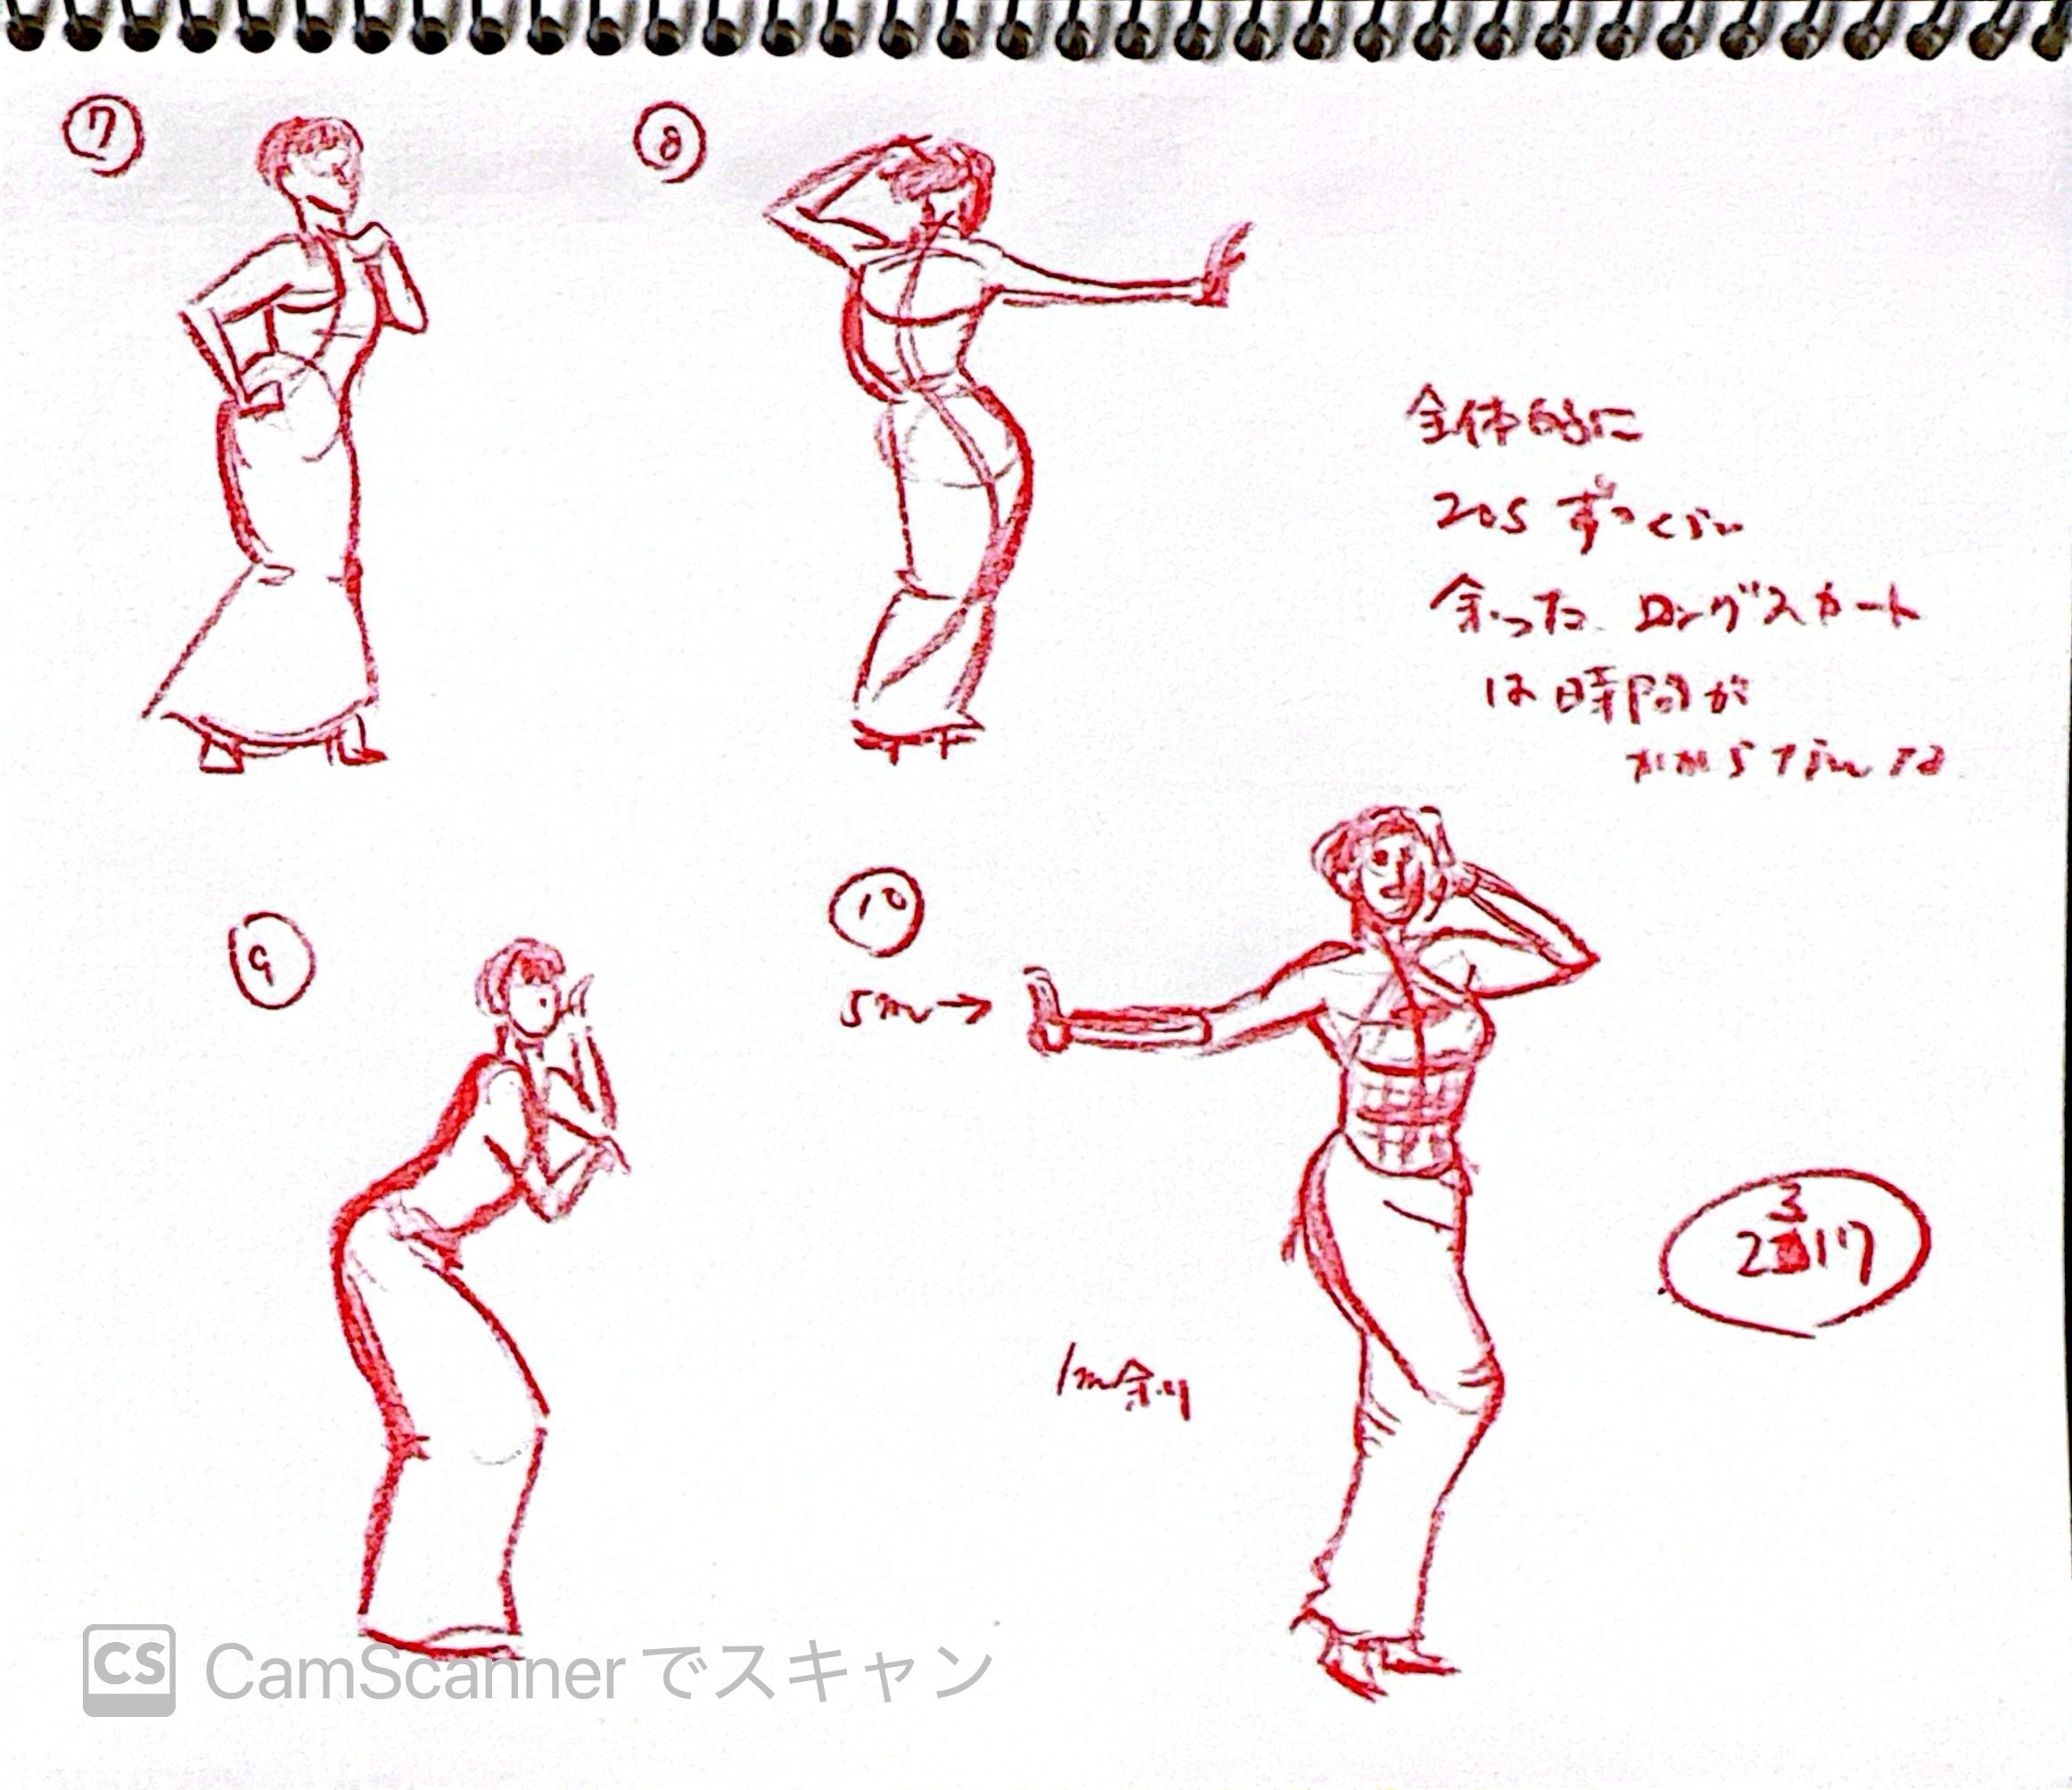 ⑦
⑧
全体的に
20s ずつくらい
余った ロングスカート
は時間が
かからないな
⑨
⑩
5m→
1m余り
3
2 117
CS CamScannerでスキャン